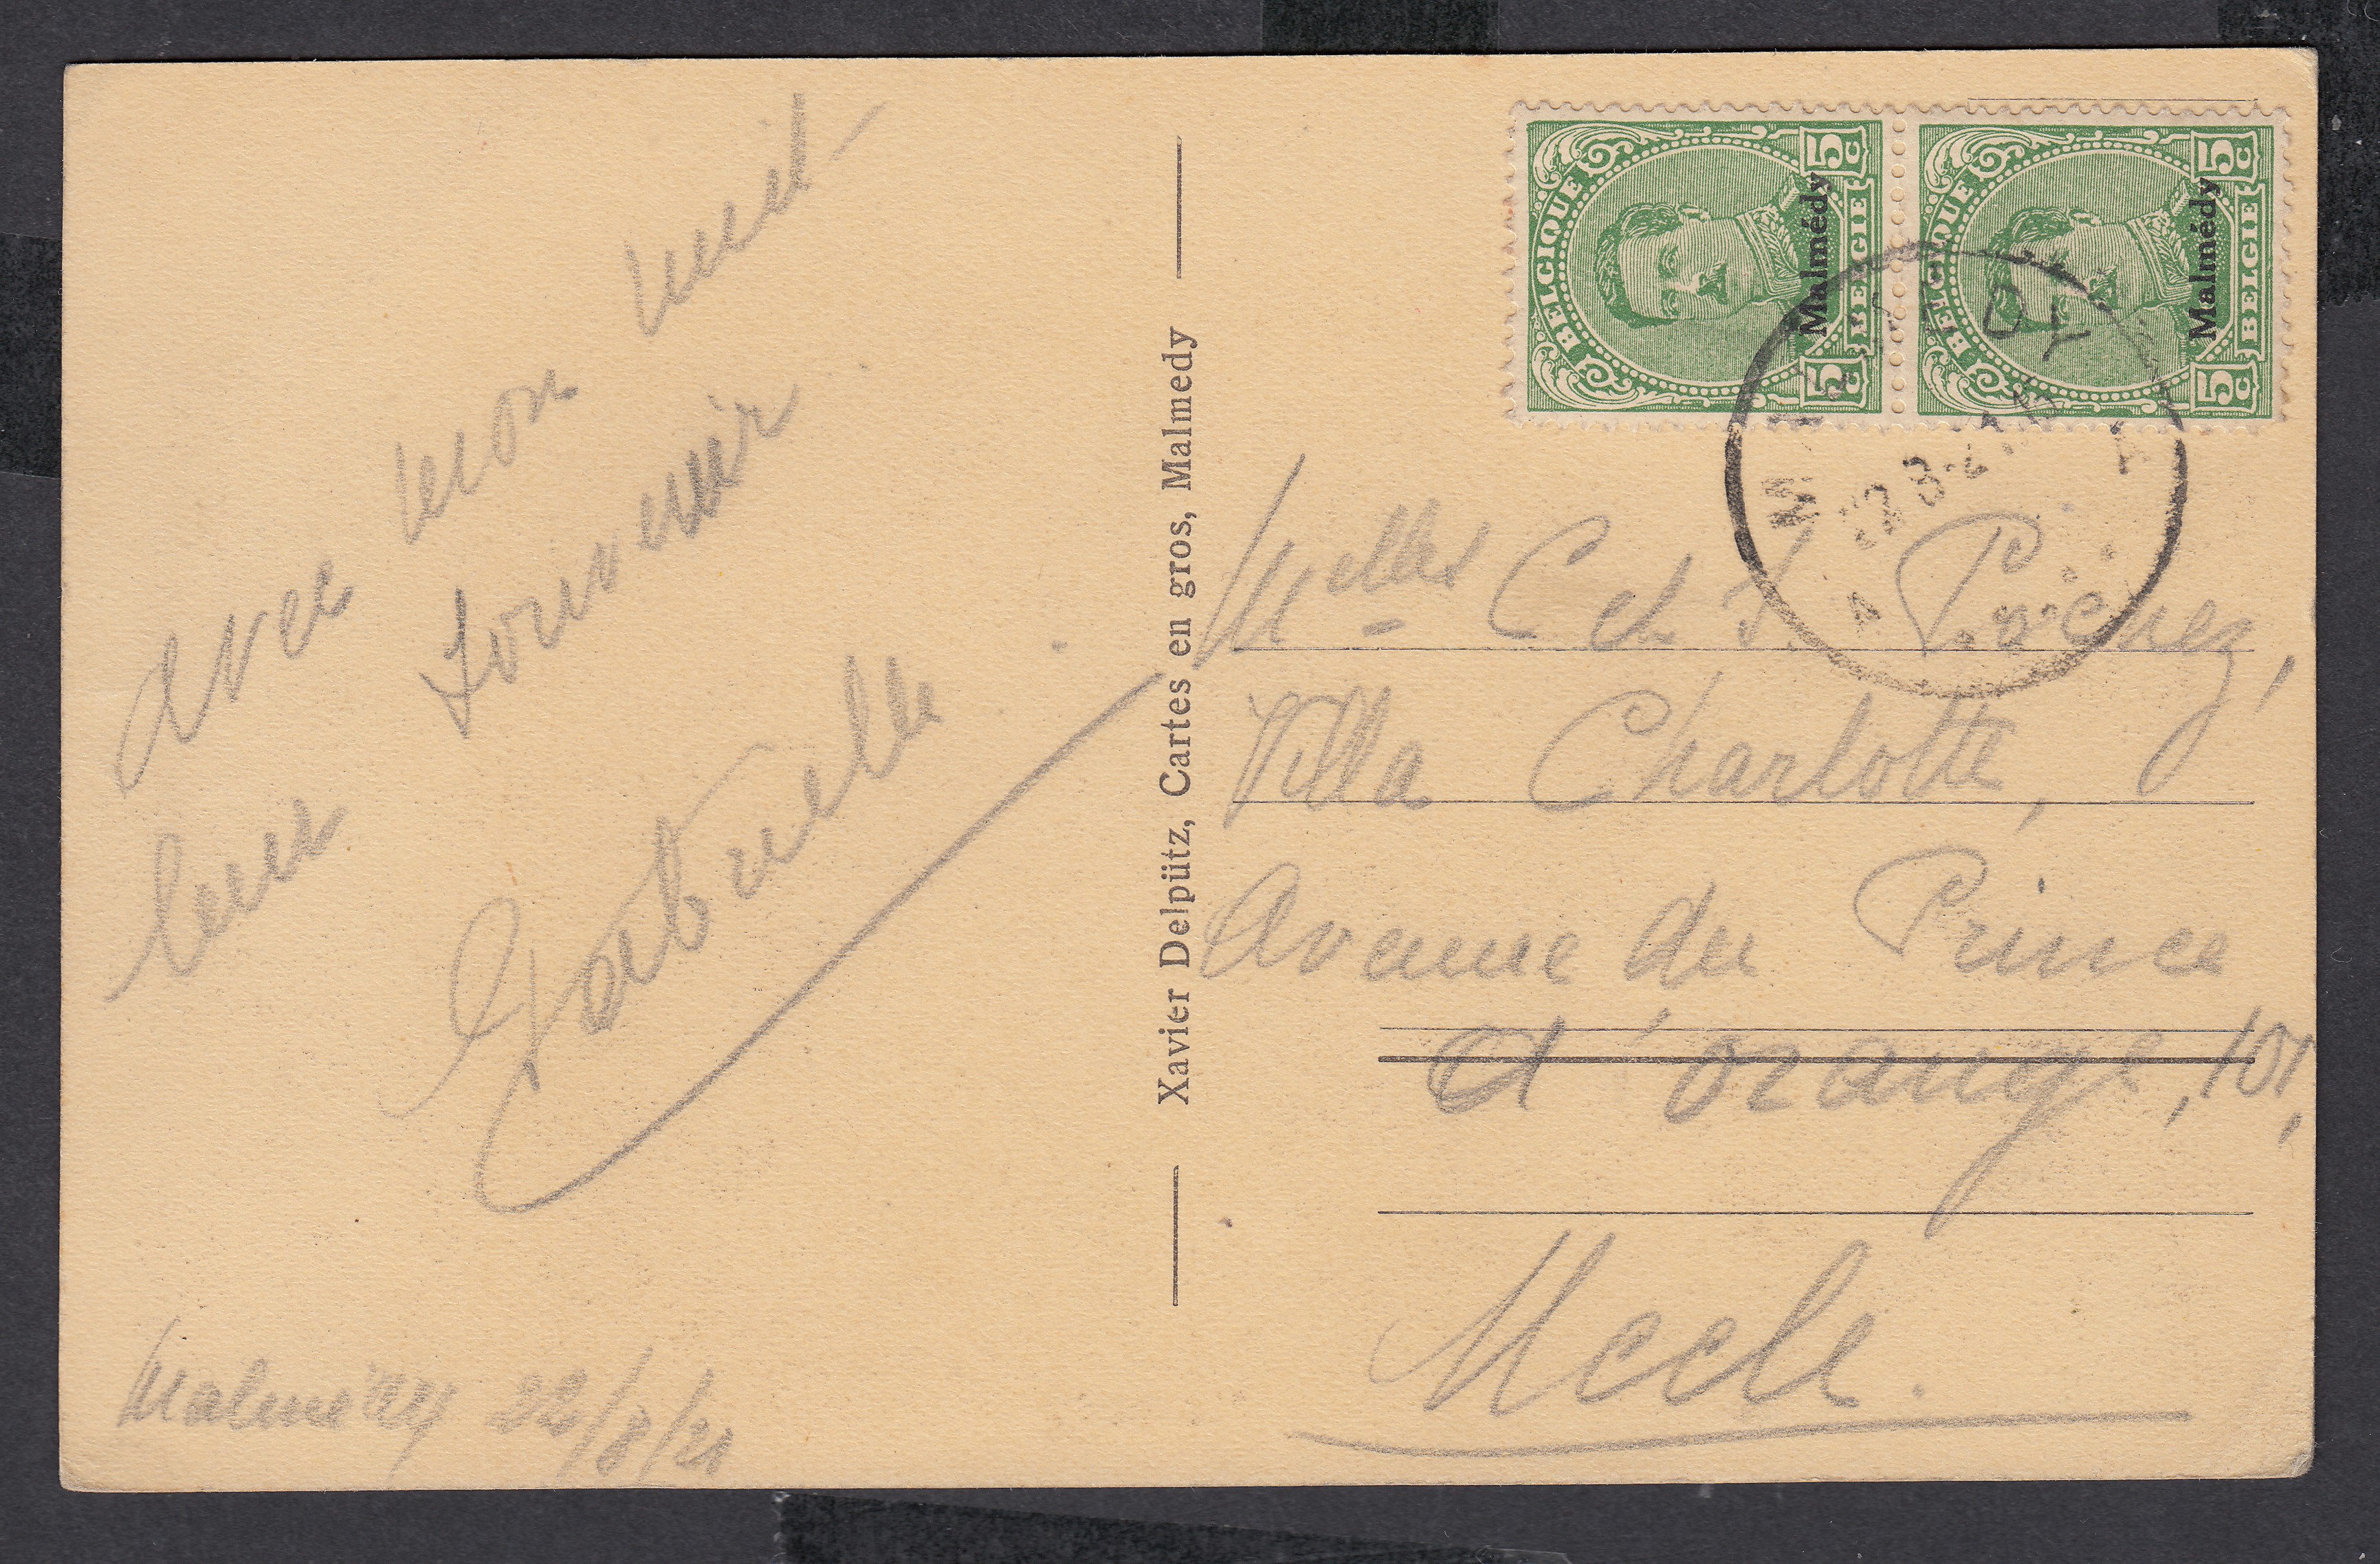 Avec mon
souvenir.
Gabrielle
Malmédy 22/8/21
Xavier Delpütz, Cartes en gros, Malmedy
BELGIQUE
5 C
5 C
BELGIE
Malmédy
BELGIQUE
5 C
5 C
BELGIE
Malmédy
MALMEDY
Melles C et
Villa Charlotte,
Avenue du Prince
d'Orange, 101,